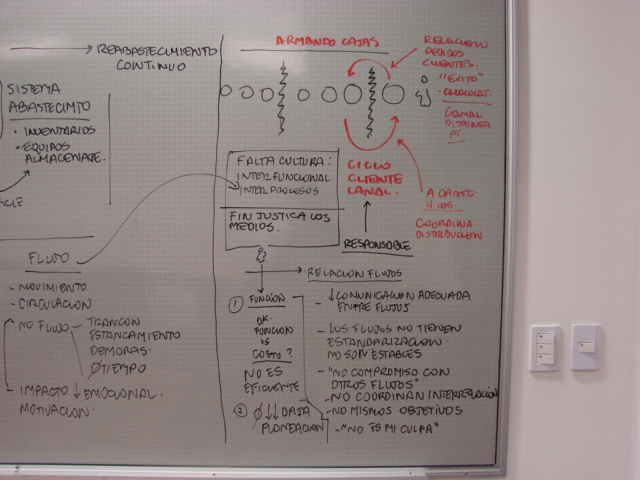 REABASTECIMIENTO
CONTINUO
SISTEMA
ABASTECIMTO
• INVENTARIOS
• EQUIPOS
ALMACENATE.
FLUJO
- MOVIMIENTO
- CIRCULACION
- NO FLUJO - TRANCON
ESTANCAMIENTO
DEMORAS.
Ø TIEMPO
- IMPACTO ↓ EMOCIONAL.
MOTIVACION.
ARMANDO CAJAS
RELACION
PEDIDOS
CLIENTES.
"EXITO"
CHOCOLAT.
CANAL
DISPENSA
PT.
FALTA CULTURA:
INTERFUNCIONAL
INTERPROCESOS
FIN JUSTICA LOS
MEDIOS.
CICLO
CLIENTE
CANAL.
RESPONSABLE
COORDINA
DISTRIBUCION
RELACION FLUJOS
① FUNCION
OK.
FUNCION
VS
COSTO?
NO ES
EFICIENTE
② Ø ↓↓ BAJA
PLANEACION
- ↓ COMUNICACION ADECUADA
ENTRE FLUJOS
- LOS FLUJOS NO TIENEN
ESTANDARIZACION.
NO SON ESTABLES
- "NO COMPROMISO CON
OTROS FLUJOS"
- NO COORDINAN INTERRELACION
- NO MISMOS OBJETIVOS
- "NO ES MI CULPA"